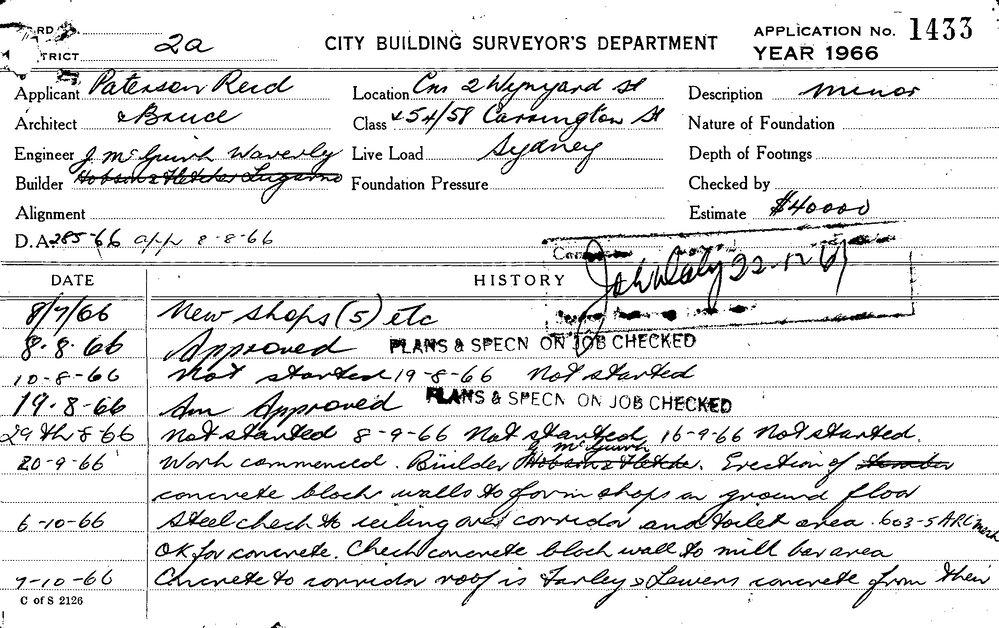 2a CITY BUILDING SURVEYOR'S DEPARTMENT APPLICATION No. 1433
TRICT YEAR 1966
Applicant Paterson Reid Location Cnr 2 Wynyard St Description minor
Architect & Bruce Class & 54/58 Carrington St Nature of Foundation
Engineer J. McGuirk Waverly Live Load Sydney Depth of Footings
Builder Hobson & Fletcher Lugarno Foundation Pressure Checked by
Alignment Estimate $40000
D.A. 285-66 app 8-8-66
John Daly 22-12-67
DATE HISTORY
8/7/66 New shops (5) etc
8.8.66 Approved PLANS & SPECN ON JOB CHECKED
10-8-66 Not started 19-8-66 Not started
19.8-66 Am Approved PLANS & SPECN ON JOB CHECKED
29th 8-66 Not started 8-9-66 Not started, 16-9-66 Not started.
J McGuirk
20-9-66 Work commenced. Builder Hobson & Fletche. Erection of
concrete block walls to form shops on ground floor
6-10-66 Steel check to ceiling over corridor and toilet area. 603-5 ARC mesh
OK for concrete. Check concrete block wall to mill bar area
7-10-66 Concrete to corridor roof is Farley & Lewers concrete from their
C of S 2126